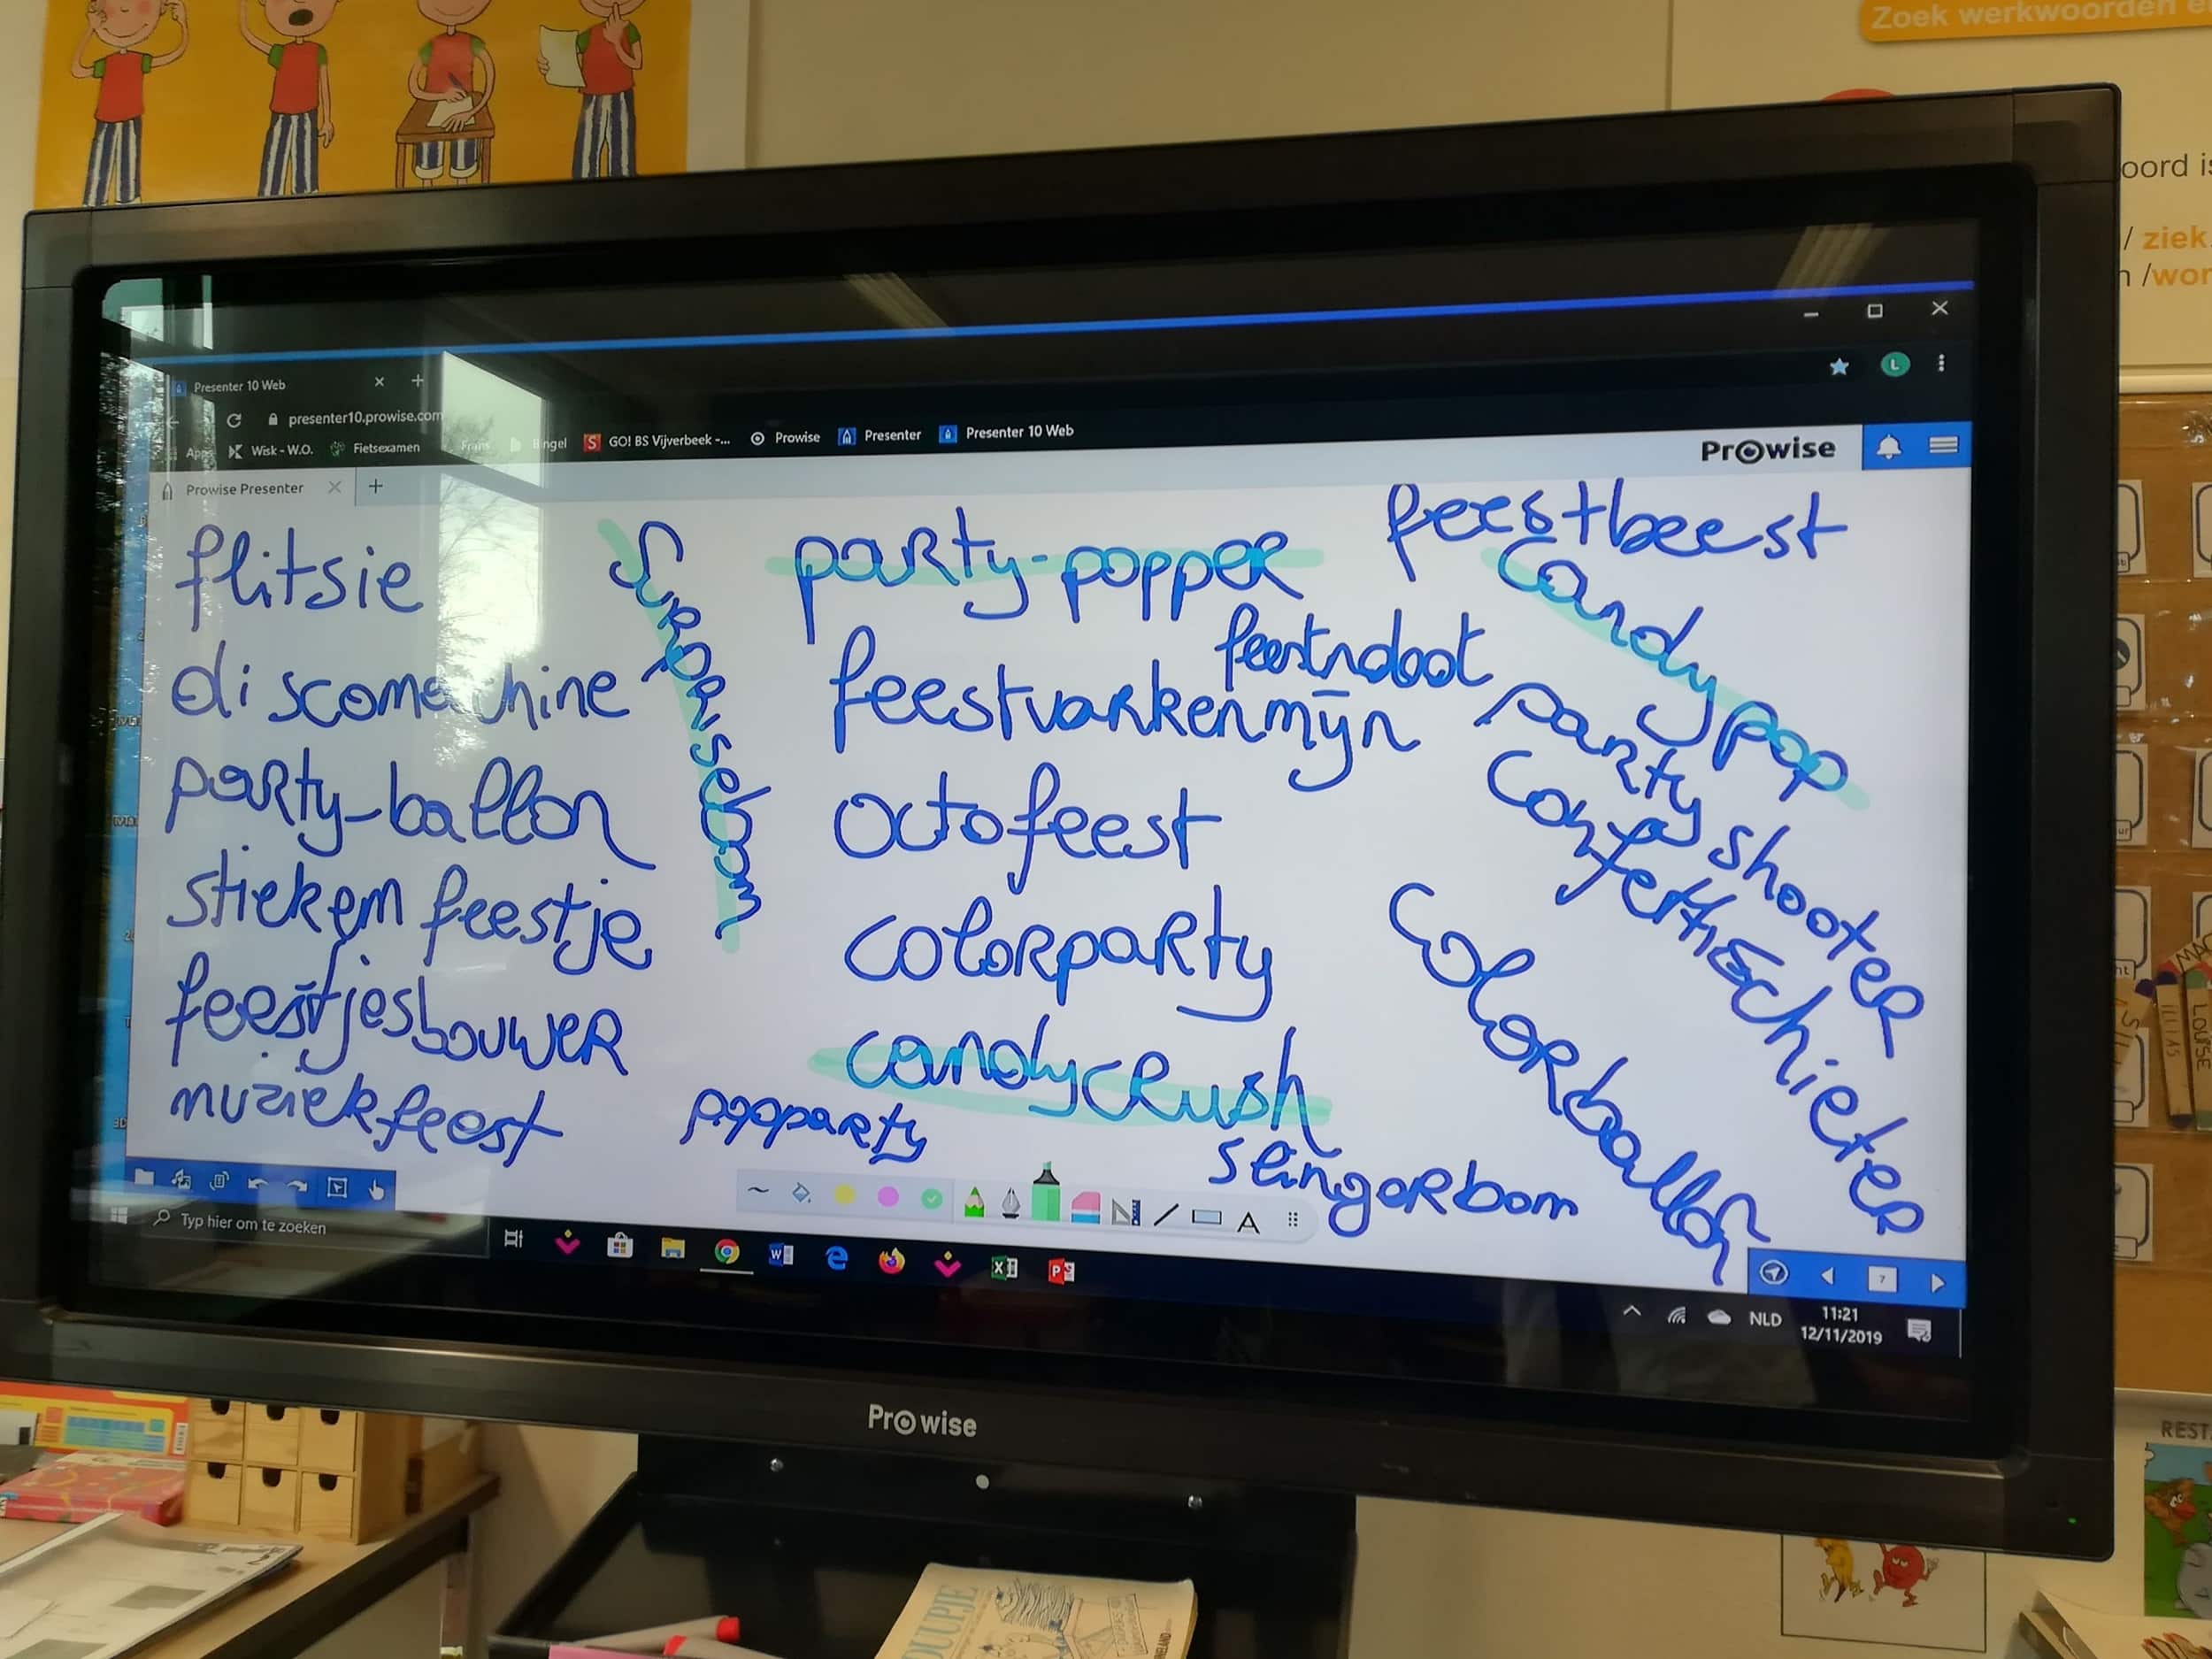 Zoek werkwoorden e
oord is
/ ziek
n /wor
Presenter 10 Web
presenter10.prowise.com
Apps
Wisk - W.O.
Fietsexamen
Frans
Bingel
GO! BS Vijverbeek -...
Prowise
Presenter
Presenter 10 Web
Prowise
Prowise Presenter
flitsie
discomachine
party-ballon
stiekem feestje
feestjesbouwer
muziekfeest
surpriseboom
party-popper
feestvarkenmijn
octofeest
colorparty
candycrush
popparty
slingerbom
feestbeest
candypop
party shooter
confettieschieter
colorballon
Typ hier om te zoeken
NLD
11:21
12/11/2019
7
Prowise
LOUISE
REST